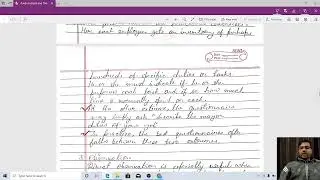 Here each employee gets an inventory of perhaps
hundreds of specific duties or tasks
He or she must indicate if he or she
performs each task and if so how much
time is normally spent on each.
At the other extreme, the questionnaire
may simply ask "describe the major
duties of your job"
In practice, the best questionnaire often
falls between these two extremes.
Observation
Direct observation is especially useful when